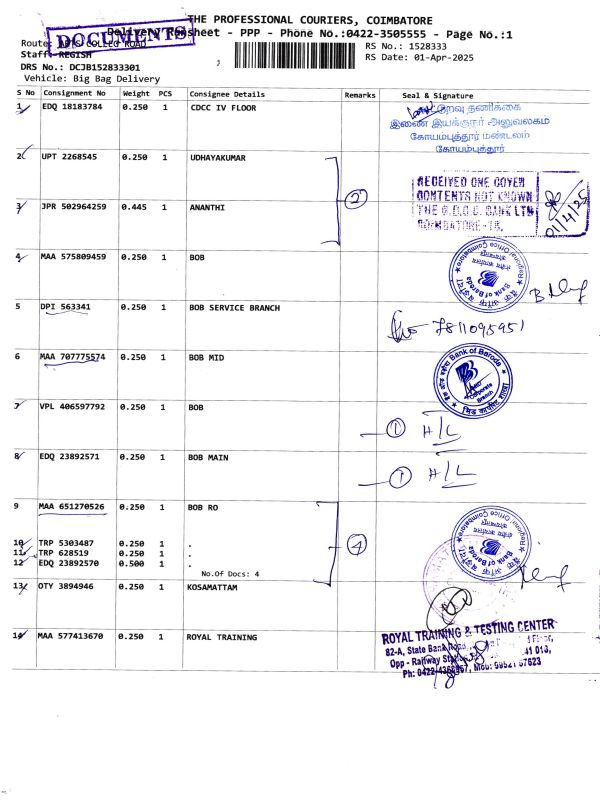 THE PROFESSIONAL COURIERS, COIMBATORE
Delivery Runsheet - PPP - Phone No.:0422-3505555 - Page No.:1
DOCUMENTS
Route: ARTS COLLEG ROAD
RS No.: 1528333
Staff: REGISH
RS Date: 01-Apr-2025
DRS No.: DCJB152833301
Vehicle: Big Bag Delivery
S No Consignment No Weight PCS Consignee Details Remarks Seal & Signature
1 EDQ 18183784 0.250 1 CDCC IV FLOOR
உறவு தணிக்கை
இணை இயக்குநர் அலுவலகம்
கோயம்புத்தூர் மண்டலம்
கோயம்புத்தூர்
2 UPT 2268545 0.250 1 UDHAYAKUMAR
RECEIVED ONE COVER
CONTENTS NOT KNOWN
THE C.D.C.C. BANK LTD
COIMBATORE - 18.
01/4/25
2
3 JPR 502964259 0.445 1 ANANTHI
4 MAA 575809459 0.250 1 BOB
Regional Office Coimbatore
Bank of Baroda
5 DPI 563341 0.250 1 BOB SERVICE BRANCH
7811095951
6 MAA 707775574 0.250 1 BOB MID
Bank of Baroda
Corporate
Branch
7 VPL 406597792 0.250 1 BOB
1 H/L
8 EDQ 23892571 0.250 1 BOB MAIN
1 H/L
9 MAA 651270526 0.250 1 BOB RO
Regional Office Coimbatore
Bank of Baroda
10 TRP 5303487 0.250 1 .
4
11 TRP 628519 0.250 1 .
12 EDQ 23892570 0.500 1 .
No.Of Docs: 4
13 OTY 3894946 0.250 1 KOSAMATTAM
14 MAA 577413670 0.250 1 ROYAL TRAINING
ROYAL TRAINING & TESTING CENTER
82-A, State Bank Road,
Opp - Railway